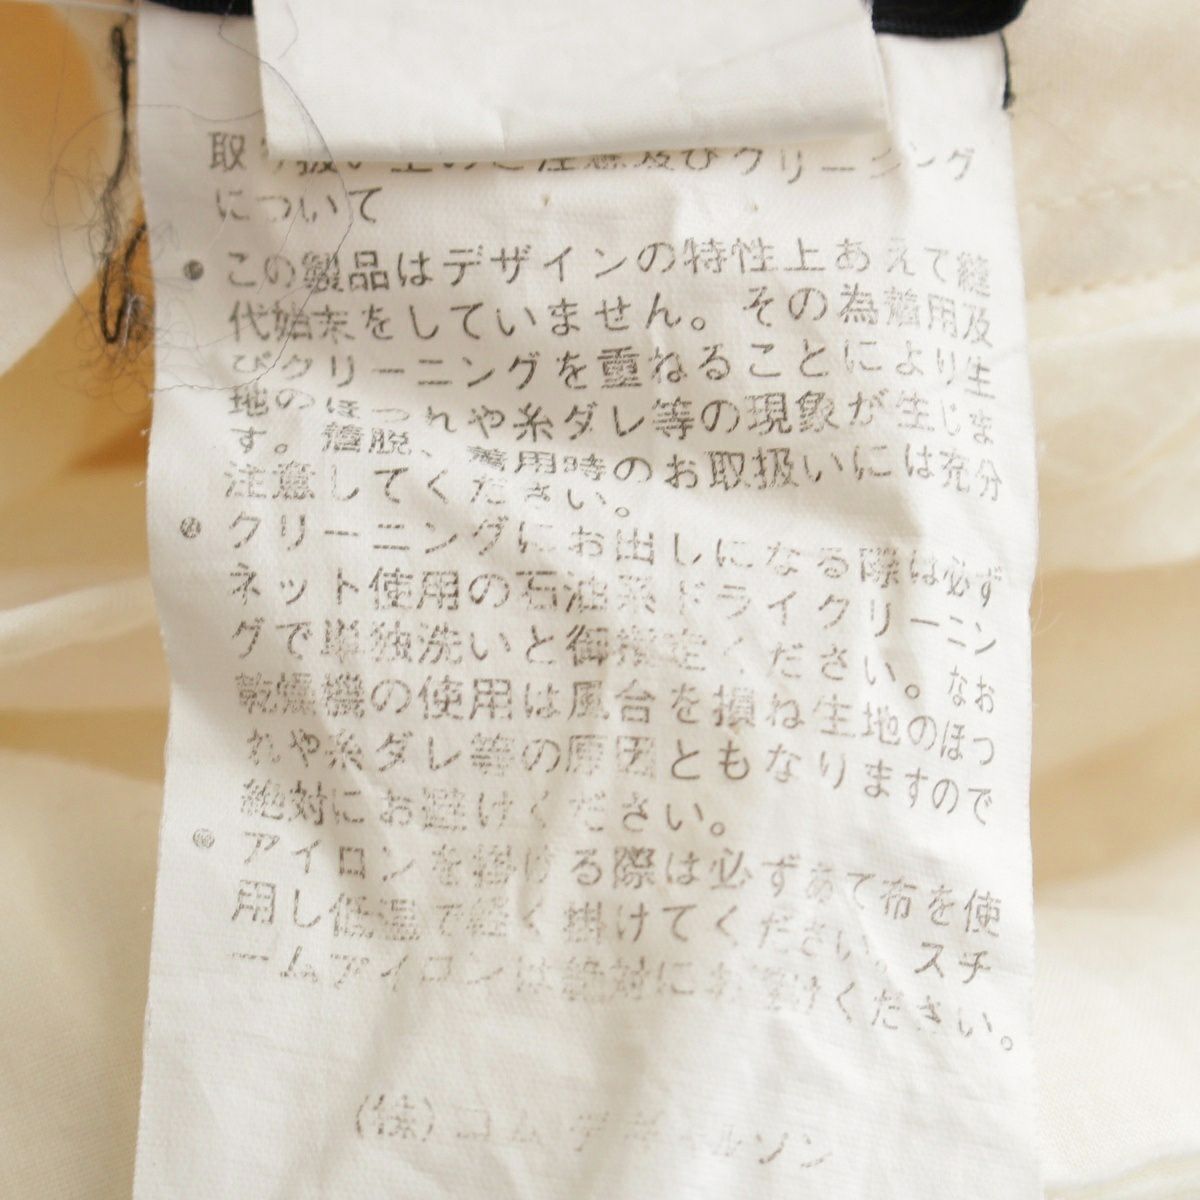 取り扱い上のご注意及びクリーニング
について
● この製品はデザインの特性上あえて縫
代始末をしていません。その為着用及
びクリーニングを重ねることにより生
地のほつれや糸ダレ等の現象が生じま
す。着脱、着用時のお取扱いには充分
注意してください。
● クリーニングにお出しになる際は必ず
ネット使用の石油系ドライクリーニン
グで単独洗いと御指定ください。なお
乾燥機の使用は風合を損ね生地のほつ
れや糸ダレ等の原因ともなりますので
絶対にお避けください。
● アイロンを掛ける際は必ずあて布を使
用し低温で軽く掛けてください。スチ
ームアイロンは絶対にお避けください。
(株)コム デ ギャルソン